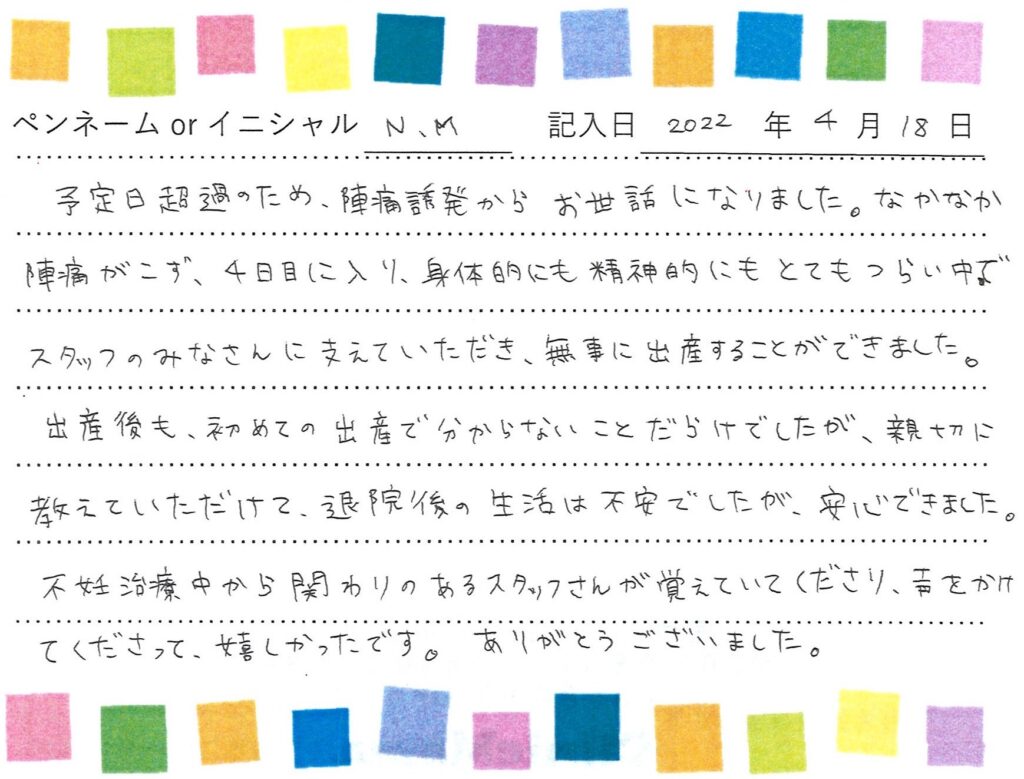 ペンネーム or イニシャル N、M 記入日 2022 年 4 月 18 日
予定日超過のため、陣痛誘発から お世話になりました。なかなか
陣痛がこず、4日目に入り、身体的にも精神的にもとてもつらい中で
スタッフのみなさんに支えていただき、無事に出産することができました。
出産後も、初めての出産で分からないことだらけでしたが、親切に
教えていただけて、退院後の生活は不安でしたが、安心できました。
不妊治療中から関わりのあるスタッフさんが覚えていてくださり、声をかけ
てくださって、嬉しかったです。 ありがとうございました。